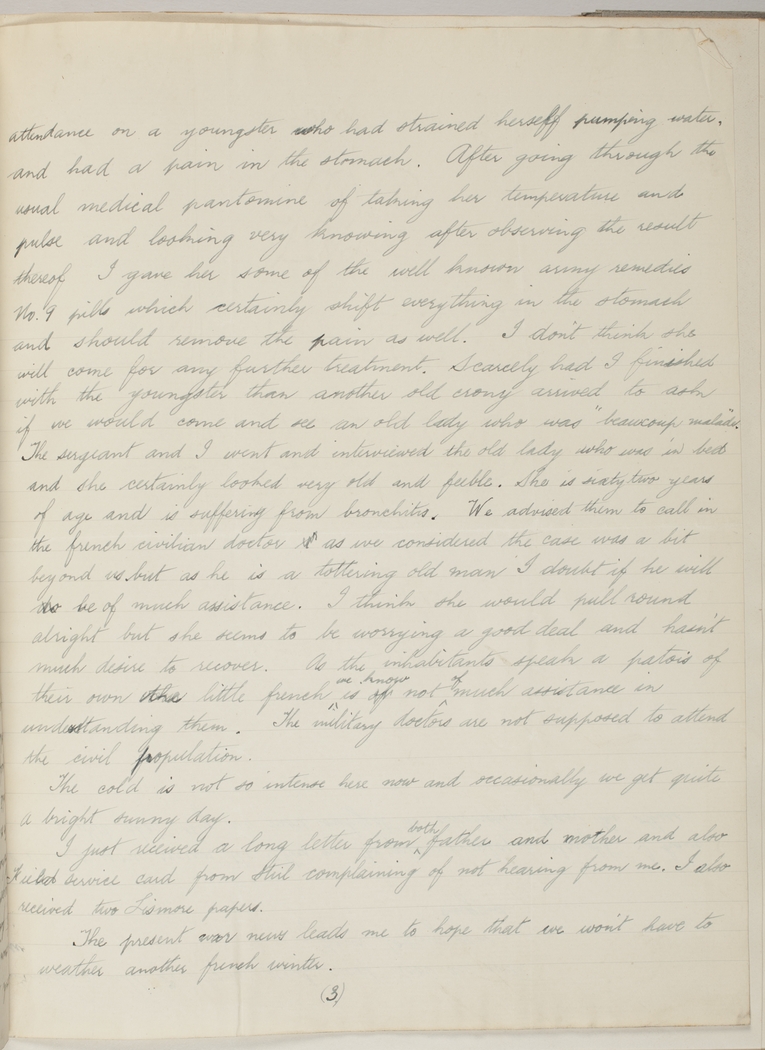 attendance on a youngster who had strained herself pumping water,
and had a pain in the stomach. After going through the
usual medical pantomine of taking her temperature and
pulse and looking very knowing after observing the result
thereof I gave her some of the well known army remedies
No. 9 pills which certainly shift everything in the stomach
and should remove the pain as well. I don't think she
will come for any further treatment. Scarcely had I finished
with the youngster than another old crony arrived to ask
if we would come and see an old lady who was "beaucoup malade".
The sergeant and I went and interviewed the old lady who was in bed
and she certainly looked very old and feeble. She is sixty two years
of age and is suffering from bronchitis. We advised them to call in
the french civilian doctor as we considered the case was a bit
beyond us but as he is a tottering old man I doubt if he will
be of much assistance. I think she would pull round
alright but she seems to be worrying a good deal and hasn't
much desire to recover. As the inhabitants speak a patois of
their own the little french we know is not of much assistance in
understanding them. The military doctors are not supposed to attend
the civil population.
The cold is not so intense here now and occasionally we get quite
a bright sunny day.
I just received a long letter from both father and mother and also
Field service card from Stil complaining of not hearing from me. I also
received two Lismore papers.
The present war news leads me to hope that we won't have to
weather another french winter.
(3)